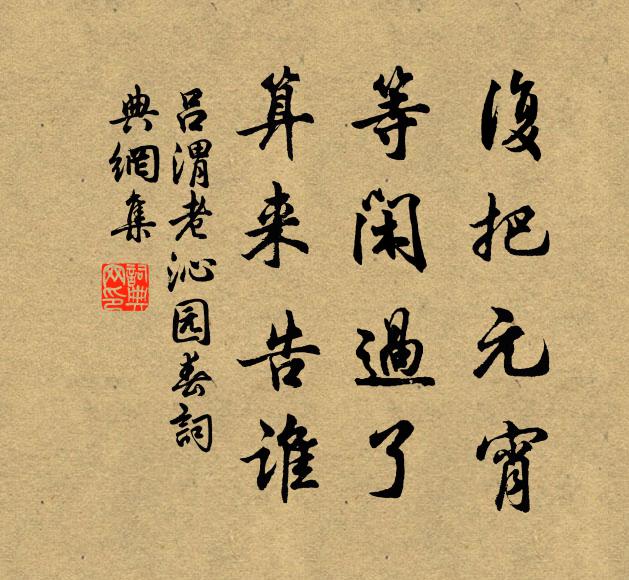 復把元宵
等閑過了
算来告誰
吕渭老沁园春詞
典網集
詞典網印